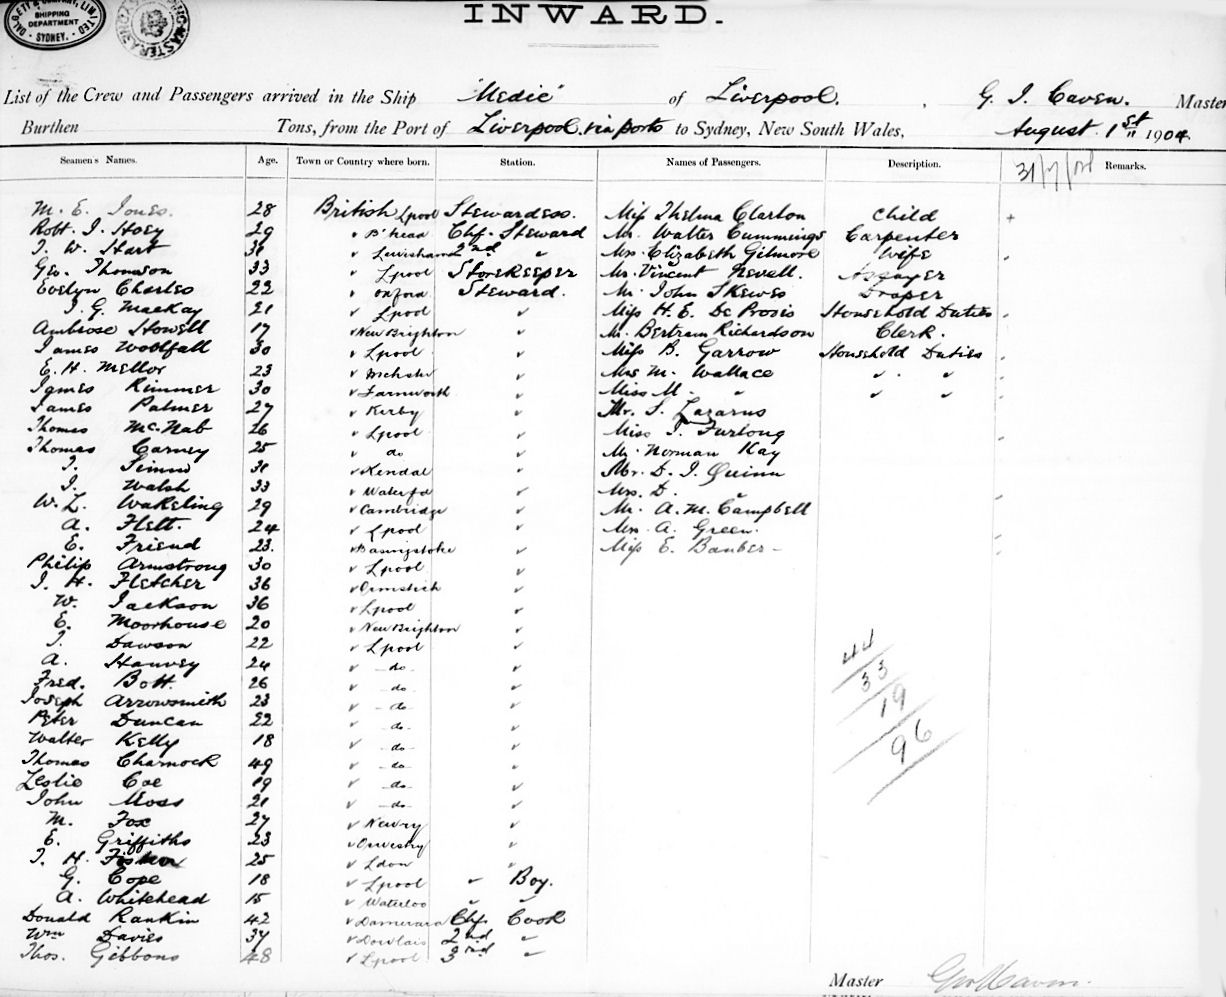 INWARD.
SHIPPING DEPARTMENT
SYDNEY.
List of the Crew and Passengers arrived in the Ship "Medic" of Liverpool. G. J. Caven. Master
Burthen Tons, from the Port of Liverpool via ports to Sydney, New South Wales, August 1st 1904.
Seamen's Names. Age. Town or Country where born. Station. Names of Passengers. Description. 31/7/04 Remarks.
M. E. Jones. 28 British Lpool Stewardess. Miss Thelma Clarton Child
Robt. J. Hoey 29 " B'head Chf. Steward Mr. Walter Cummings Carpenter
J. W. Hart 31 " Lewisham 2nd " Mrs. Elizabeth Gilmore Wife
Geo. Thomson 33 " Lpool Storekeeper Mr. Vincent Nevell. Assayer
Evelyn Charles 22 " Oxford Steward. Mr. John Skewes Draper
J. G. Mackay 21 " Lpool " Miss H. E. De Provis Household Duties
Ambrose Howell 17 " New Brighton " Mr. Bertram Richardson Clerk.
James Woolfall 30 " Lpool " Miss B. Garrow Household Duties
E. H. Mellor 23 " " Mrs M. Wallace " "
James Rimmer 30 " Farnworth " Miss M. " " "
James Palmer 27 " Kirby " Mr. S. Lazarus
Thomas McNab 26 " Lpool " Miss J. Furlong
Thomas Carney 25 " do " Mr. Norman Kay
J. 31 " Kendal " Mr. D. J. Quinn
J. Walsh 33 " Waterfd " Mrs. D. "
W. L. Wakeling 29 " Cambridge " Mr. A. M. Campbell
A. Flett. 24 " Lpool " Mrs. A. Green.
E. Friend 23. " Basingstoke " Miss E. Banber
Philip Armstrong 30 " Lpool "
J. H. Fletcher 36 " Ormskirk "
W. Jackson 36 " Lpool "
E. Moorhouse 20 " New Brighton "
J. Dawson 22 " Lpool "
A. Harvey 24 " do "
Fred. Bott. 26 " do "
Joseph Arrowsmith 23 " do "
Peter Duncan 22 " do "
Walter Kelly 18 " do "
Thomas Charnock 49 " do "
Leslie Coe 19 " do "
John Moss 21 " do "
M. Fox 27 " Newry "
E. Griffiths 23 " Oswestry "
J. H. 25 " Ldon "
G. Cope 18 " Lpool " Boy.
A. Whitehead 15 " Waterloo " "
Donald Rankin 42 " Damerara Chf. Cook
Wm Davies 37 " Dowlais 2nd "
Thos. Gibbons 48 " Lpool 3rd "
44
33
19
96
Master Geo J Caven.